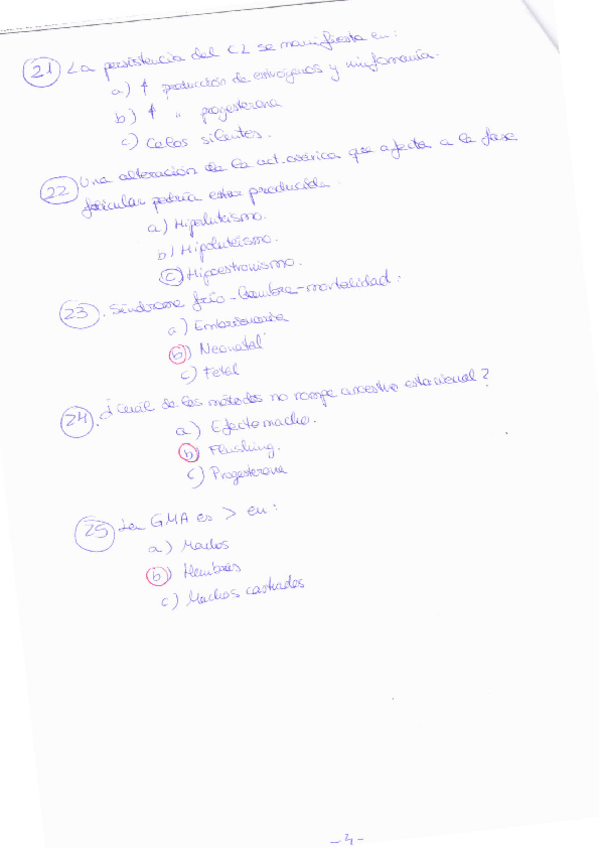 21 La persistencia del CL se manifiesta en:
a) ↑ producción de estrógenos y ninfomanía.
b) ↑ " progesterona
c) Celos silentes.
22 Una alteración de la act. ovárica que afecta a la fase
folicular podría estar producida :
a) Hipoluteismo.
b) Hipoluteismo.
c) Hipoestronismo.
23. Síndrome frío-hambre-mortalidad:
a) Embrionaria
b) Neonatal
c) Fetal
24. ¿Cuál de los métodos no rompe anestro estacional?
a) Efecto macho.
b) Flushing.
c) Progesterona
25 La GMA es > en:
a) Machos
b) Hembras
c) Machos castrados
-4-